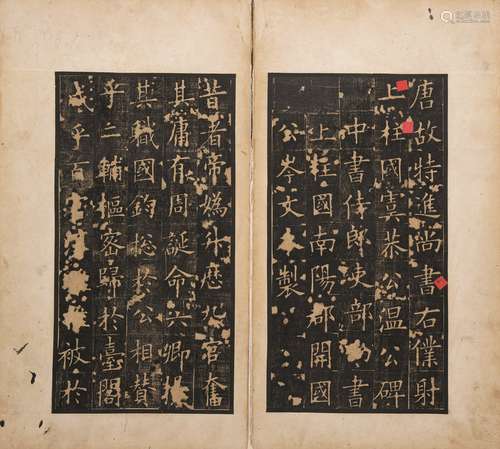 唐故特進尚書右僕射
上柱國虞恭公溫公碑
中書侍郎 書
上柱國南陽郡開國
公岑文本製
昔者帝媯升歷九官奮
其庸有周誕命六卿揚
其職國鈞總於公相贊
乎二輔樞密歸於臺閣
成乎百 被於